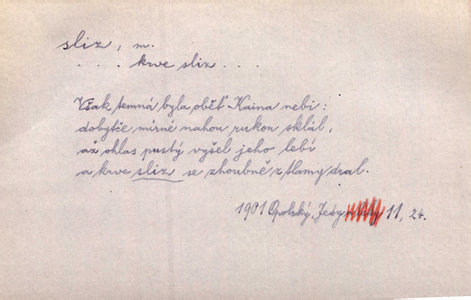 sliz, m.
. . . . krve sliz . . . .
Však temná byla oběť Kaina nebi:
dobytče mírné nahou rukou sklál,
až ohlas pustý vyšel jeho lebí
a krve sliz se zhoubně z tlamy dral.
1901 Opolský, Jedy 11, 24.